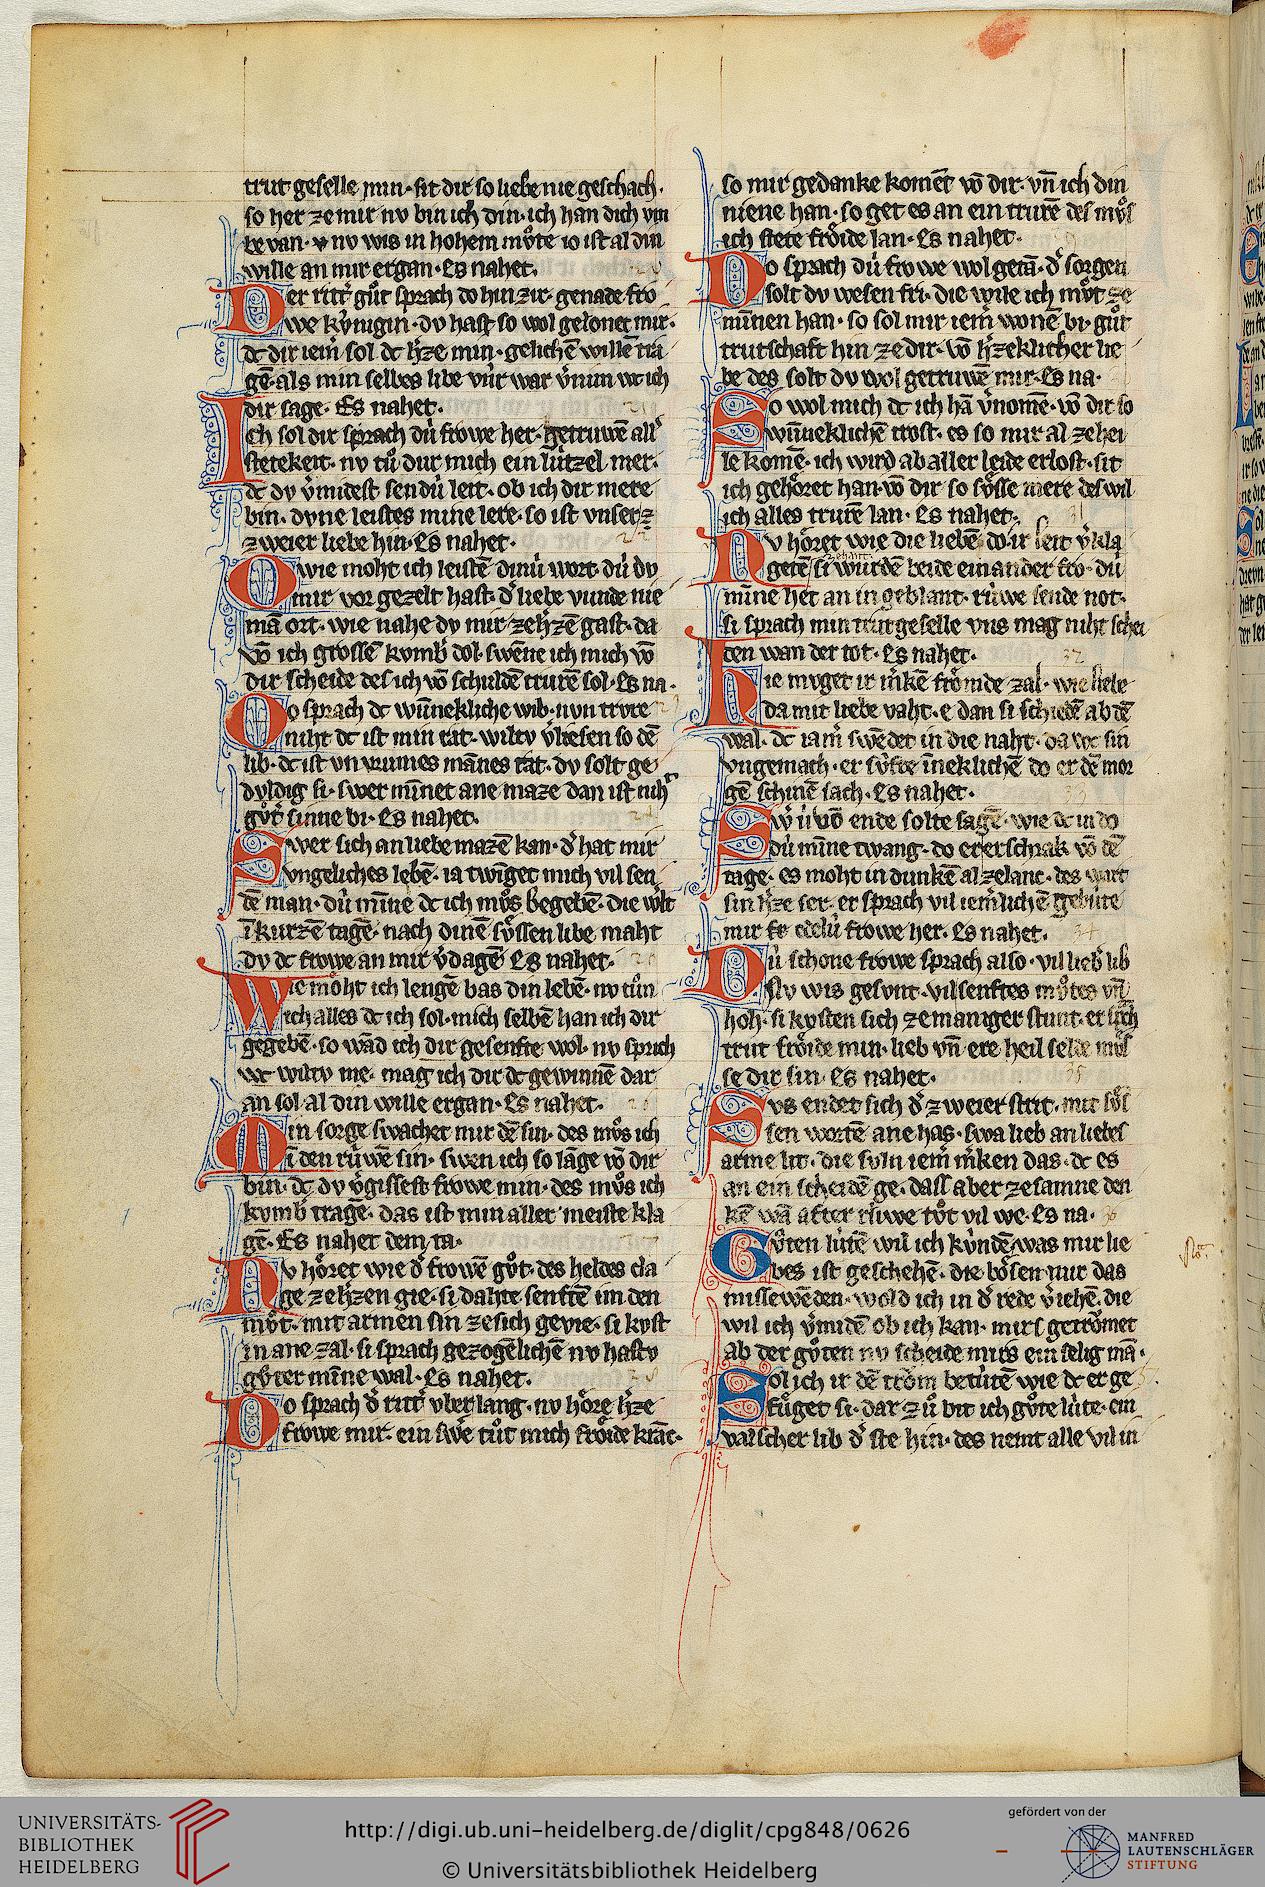 trut geselle min · sit dir so liebe nie geschach ·
so her ze mir nv bin ich din · ich han dich vm
be van · nv wis in hohem mvͦte io ist al din
wille an mir ergan · Es nahet.
Der ritt̾ gvͦt sprach do hin zir · genade fro
we kv́nigin · dv hast so wol gelonet mir ·
dc dir iem̾ sol dc h̾ze min · gelichē willē tra
gē · als min selbes libe vúr war v̾nim wc ich
dir sage · Es nahet ·
Ich sol dir sprach dú frowe her · getruwē all̾
stetekeit · nv tuͦ dur mich ein lútzel mer ·
dc dv v̾midest sendú leit · ob ich dir mere
bin · dvne leistes mine lere · so ist vnser
zweier liebe hin · Es nahet ·
Owie moht ich leistē dinú wort · dú dv
mir vor gezelt hast · d̾ liebe vunde nie
mā ort · wie nahe dv mir ze h̾zē gast · da
vō ich grossē kvmb̾ dol · swēne ich mich vō
dir scheide des ich vō schuldē trurē sol · Es na ·
Do sprach dc wūnekliche wib · nvn trvre
niht dc ist min rat · wiltv v̾liesen so dē
lib · dc ist vn vrumes mānes tat · dv solt ge
dvldig si · swer mīnet ane maze dan ist nih
gvͦt̾ sinne bi · Es nahet.
Swer sich an liebe mazē kan · d̾ hat mir
vngeliches lebē · ia twinget mich vil sen
dē man · dú mīne dc ich mvͦs begebē · die w̾lt
ī kurzē tagē · nach dinē svͤssen libe maht
dv dc frowe an mir v̾dagē Es nahet.
Wie möht ich lengē bas din lebē · nv tuͦn
ich alles dc ich sol · mich selbē han ich dir
gegebē · so wād ich dir gesenfte wol · nv sprich
wc wiltv me · mag ich dir dc gewinnē dar
an sol al din wille ergan · Es nahet.
Min sorge swachet mir dē sin · des mvͦs ich
ī den rúwē sin · swen ich so lāge vō dir
bin · dc dv v̾gissest frowe min · des mvͦs ich
kvmb̾ tragē · das ist min aller meiste kla
gē · Es nahet dem ta ·
Nv hoͤret wie d̾ frowē gvͦt · des heldes cla
ge ze h̾zen gie · si dahte senftē im den
mvͦt · mit armen sin ze sich gevie · si kvst
in ane zal · si sprach gezogēlichē nv hastv
gvͦter mīne wal · Es nahet.
Do sprach d̾ ritt̾ vber lang · nv hoͤre h̾ze
frowe mir · ein tuͦt mich froͤide krāc ·
so mir gedanke komēt vō dir · vn̄ ich din
niene han · so get es an ein trurē des mvͦs
ich stete froͤide lan · Es nahet ·
Do sprach dú frowe wol getā · d̾ sorgen
solt dv wesen fri · die wile ich mvͦt ze
mīnen han · so sol mir iem̾ wonē bi · gvͦt
trutschaft hin ze dir · vō h̾zeklicher lie
be des solt dv wol getruwē mir · Es na ·
So wol mich dc ich hā v̾nomē · vō dir so
wūneklichē trost · es so mir al ze hei
le komē · ich wird ab aller leide erlost · sit
ich gehoͤret han · vō dir so svͤsse mere des wil
ich alles trurē lan · Es nahet ·
Nv hoͤret wie die liebē do ir leit v̾kla
getē si wurdē beide ein ander fro · dú
mīne het an in geblant · rúwe sende not ·
si sprach min trut geselle vns mag niht schei
den wan der tot · Es nahet ·
Hie mvget ir m̾kē froͤmde zal · wie liebe
da mit liebe vaht · e dan si schiedē ab dē
wal · dc iam̾ swēdet in die naht · da wc sin
vngemach · er svfte īneklichē do er dē mor
gē schinē sach · Es nahet ·
Sw̾ ú vō ende solte sagē · wie dc in do
dú mīne twang · do er erschrak vō dē
tage · es moht in dunkē al ze lanc · des wart
sin h̾ze ser · er sprach vil iem̾lichē gebúte
mir edelú frowe her · Es nahet ·
Dú schone frowe sprach also · vil lieb̾ lib
Nv wis gesvnt · vil senftes mvͦtes vn̄
hoh · si kvsten sich ze maniger stunt · er sprach
trut froͤide min · lieb vn̄ ere heil selde mvͦs
se dir sin · Es nahet ·
Svs endet sich d̾ zweier strit · mit svͤs
sen wortē ane has · swa lieb an liebes
arme lit · die svln iem̾ m̾ken das · dc es
an ein scheidē ge · dass aber zesamne den
kē wā after rúwe tvͦt vil we · Es na ·
Gvͦten lútē wil ich kv́ndē was mir lie
bes ist geschehē · die boͤsen mir das
missewēden · wold ich in d̾ rede v̾iehē · die
wil ich v̾midē ob ich kan · mirs getroͤmet
ab der gvͦten nv scheide mirs ein selig mā ·
Sol ich ir dē trom betútē wie dc er ge
fuͤget si · dar zuͦ bit ich gvͦte lúte · ein
valscher lib d̾ ste hin · des nemt alle vil in
UNIVERSITÄTS-
BIBLIOTHEK
HEIDELBERG
http://digi.ub.uni-heidelberg.de/diglit/cpg848/0626
© Universitätsbibliothek Heidelberg
gefördert von der
MANFRED
LAUTENSCHLÄGER
STIFTUNG